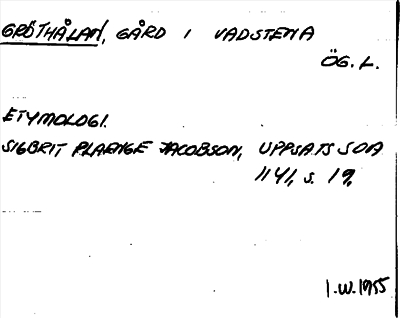 GRÖTHÅLAN, GÅRD I VADSTENA
ÖG. L.
ETYMOLOGI.
SIGBRIT PLAENGE JACOBSON, UPPSATS SOA
1141, S. 19,
I.W.1955